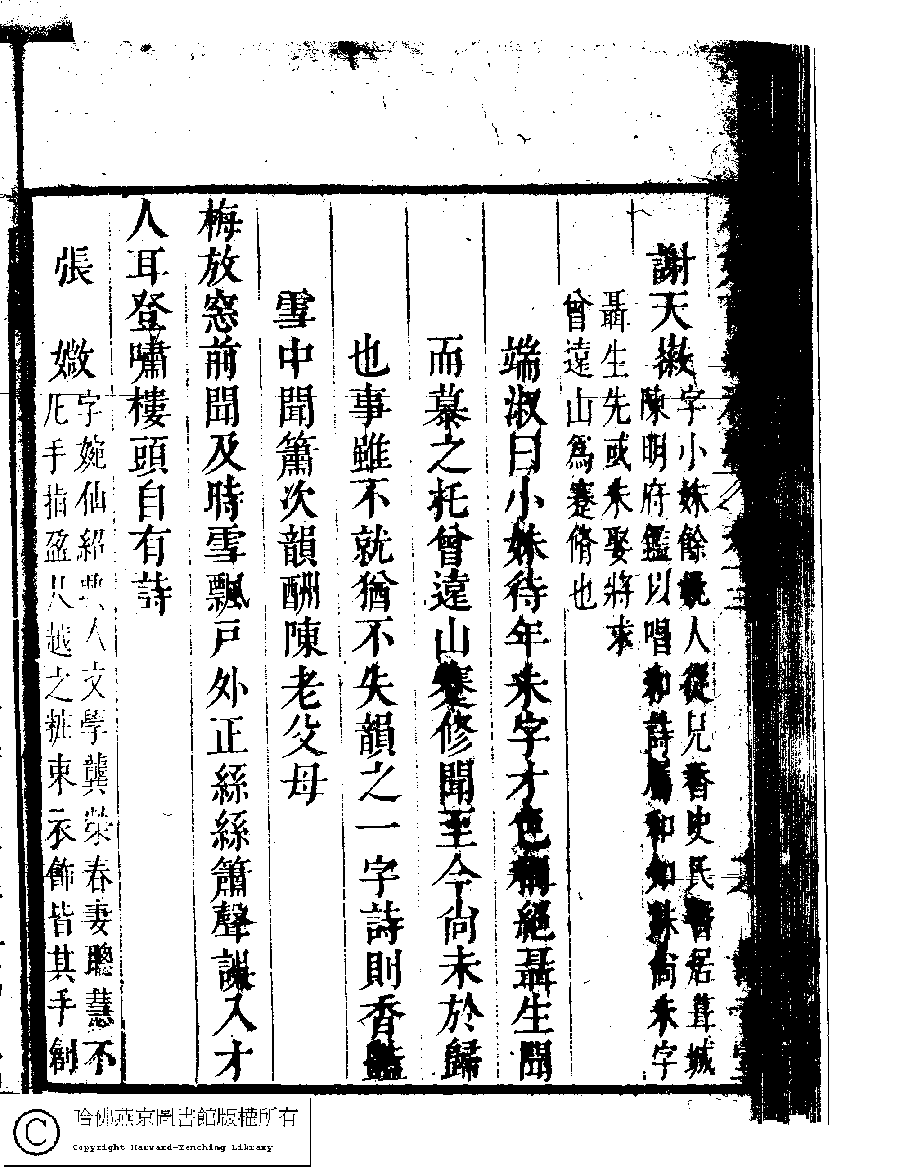 謝天㩰字小妹餘姚人從兄香史氏僑居蕺城
陳明府鑑以唱和詩屬和如妹尚未字
聶生先或未娶將求
曾遠山為蹇脩也
端淑曰小妹待年未字才色稱絕聶生聞
而慕之托曾遠山蹇修聞至今尚未於歸
也事雖不就猶不失韻之一字詩則香豔
雪中聞簫次韻酬陳老父母
梅放窓前聞及時雪飄戶外正絲絲簫聲誤入才
人耳登嘯樓頭自有詩
張媺字婉仙紹興人文學龔榮春妻聰慧不
凡手指盈尺越之粧束衣飾皆其手創
哈佛燕京圖書館版權所有
Copyright Harvard-Yenching Library